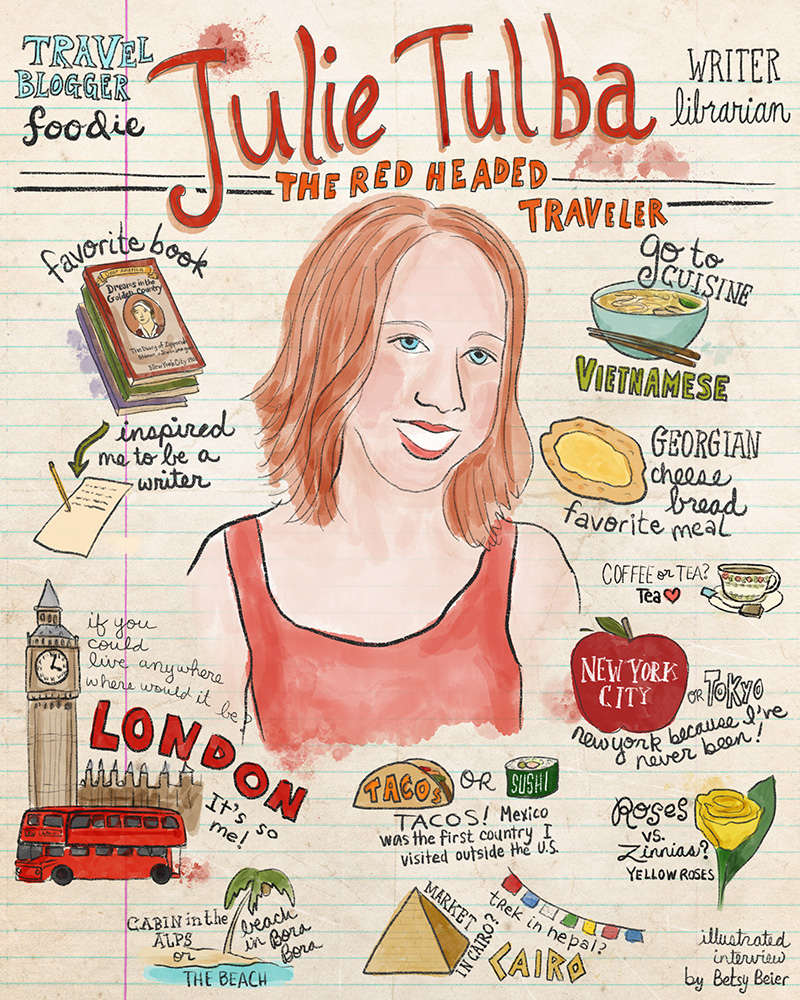 TRAVEL
BLOGGER
foodie
Julie Tulba
WRITER
librarian
THE RED HEADED
TRAVELER
favorite book
Dear America
Dreams in the
Golden Country
The Diary of Zipporah
New York City
inspired
me to be a
writer
go to
CUISINE
VIETNAMESE
GEORGIAN
cheese
bread
favorite meal
COFFEE or TEA?
Tea
if you
could
live anywhere
where would it be?
LONDON
It's so
me!
NEW YORK
CITY
OR TOKYO
new york because I've
never been!
TACOS OR SUSHI
TACOS! Mexico
was the first country I
visited outside the U.S.
Roses
vs.
Zinnias?
YELLOW ROSES
CABIN in the
ALPS
or
beach
in Bora
Bora
THE BEACH
MARKET
IN CAIRO?
trek in nepal?
CAIRO
illustrated
interview
by Betsy Beier